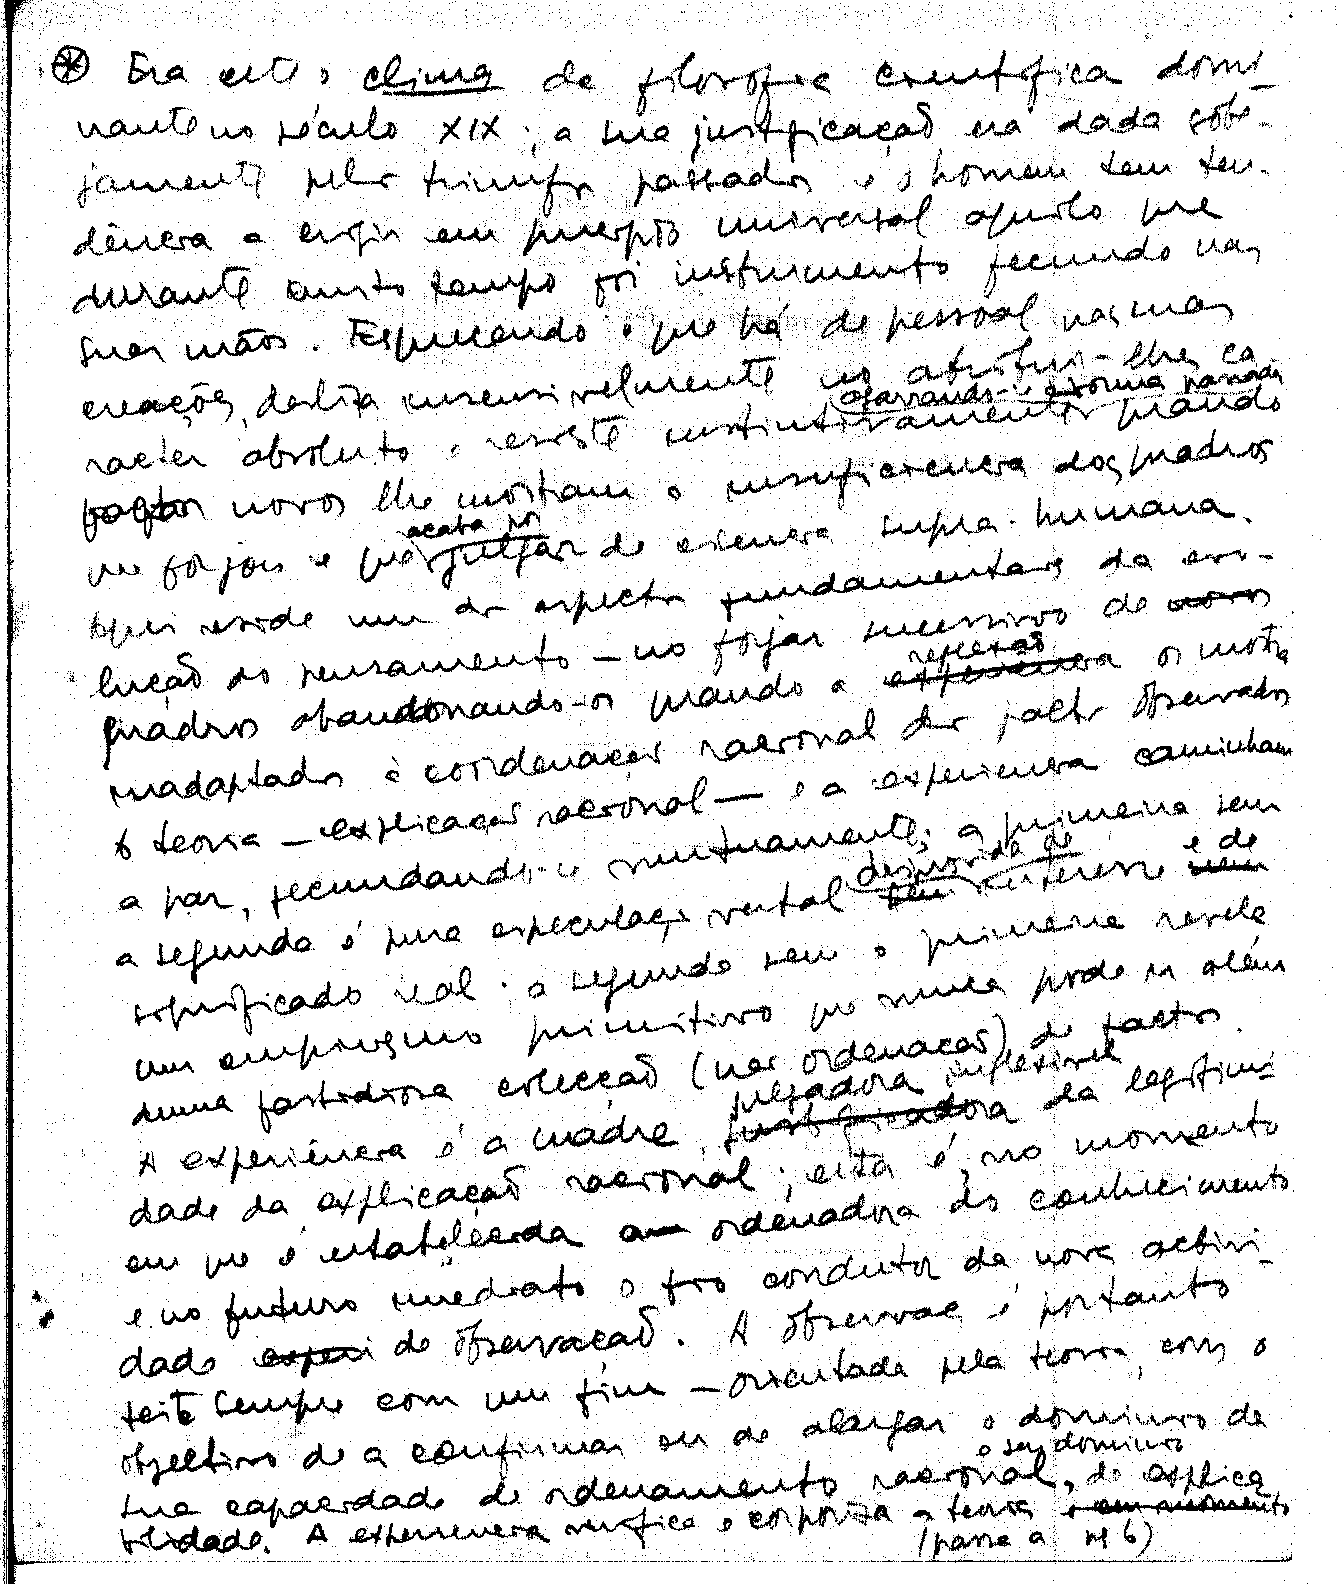 ⊛ Era este o clima de filosofia científica domi-
nante no século XIX; a sua justificação era dada sobe-
jamente pelos triunfos passados e o homem tem ten-
dência a erigir em princípio universal aquilo que
durante muito tempo foi instrumento fecundo nas
suas mãos. Esquecendo o que há de pessoal nas suas
creações, desliza insensivelmente no atribuir-lhes ca-
agarrando-se à forma passada
racter absoluto e resiste instintivamente quando
factos novos lhe mostram a insuficiencia dos quadros
acaba por
que forjou e que julgar de essencia supra-humana.
Aqui reside um dos aspectos fundamentais da evo-
lução do pensamento – no forjar sucessivo de novos
reflexão
quadros abandonando-os quando a experiencia os mostra
inadaptados à coordenação racional dos factos observados
A teoria – explicação racional – e a experiencia caminham
a par, fecundando-se mutuamente; a primeira sem
desprovida de e de
a segunda é pura especulação verbal sem interesse nem
significado real; a segunda sem a primeira revela
um empirismo primitivo que nunca pode ir além
duma fastidiosa colecção (não ordenação) de factos.
julgadora inflexivel
A experiência é a madre, justificadora da legitimi-
dade da explicação racional; esta é, no momento
em que é estabelecida a ordenadora do conhecimento
e no futuro imediato o fio condutor da nova activi-
dade experi de observação. A observação é portanto
feita sempre com um fim – orientada pela teoria, com o
objectivo de a confirmar ou de alargar o dominio de
o seu dominio
sua capacidade de ordenamento racional, de explica-
bilidade. A experiencia verifica e corporiza a teoria e em momento
(passa a nº 6)